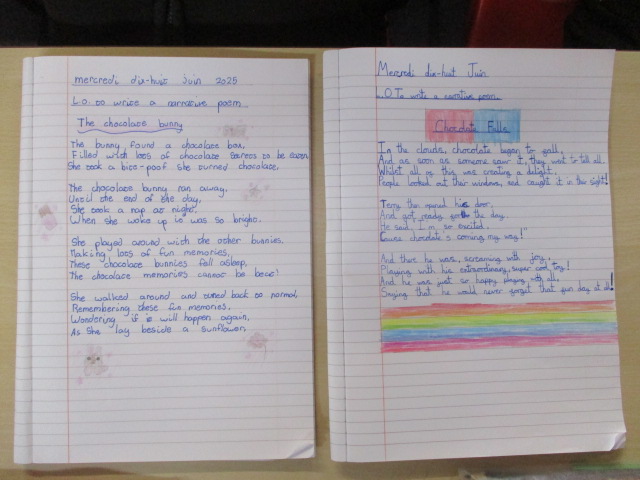 mercredi dix-huit Juin 2025
L.O. to write a narrative poem
The chocolate bunny
The bunny found a chocolate box,
Filled with lots of chocolate to be eaten
She took a bite-poof she turned chocolate,
The chocolate bunny ran away,
Until the end of the day,
She took a nap at night,
When she woke up it was so bright.
She played around with the other bunnies,
Making lots of fun memories,
These chocolate bunnies fell asleep,
The chocolate memories cannot be beat!
She walked around and turned back to normal,
Remembering these fun memories,
Wondering if it will happen again,
As she lay beside a sunflower.
Mercredi dix-huit Juin
L.O To write a narrative poem.
Chocolate Falls
In the clouds, chocolate began to fall,
And as soon as someone saw it, they went to tell all.
Whilst all of this was creating a delight,
People looked out their windows, and caught it in their sight!
Terry then opened his door,
And got ready for the day.
He said, I'm so excited,
Cause chocolate's coming my way!"
And there he was, screaming with joy,
Playing with his extraordinary, super cool toy!
And he was just so happy playing with all,
Saying that he would never forget that fun day at all!